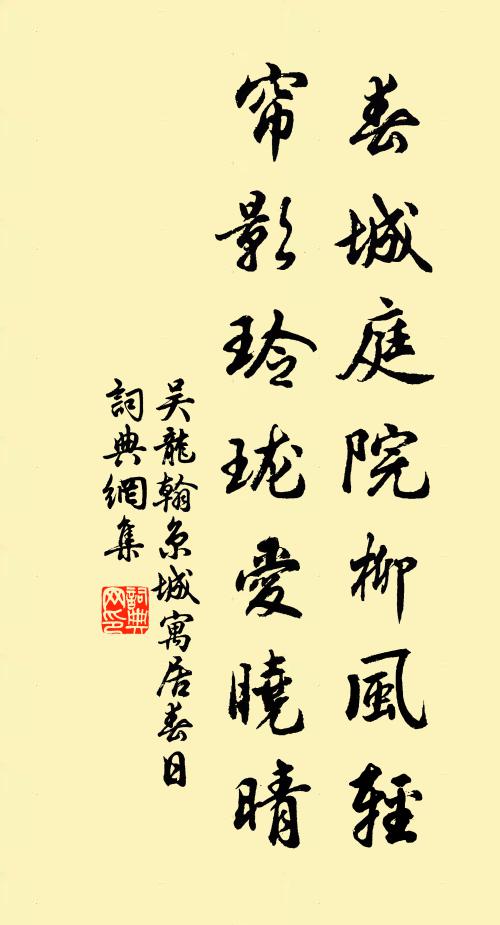 春城庭院柳風輕
帘影玲瓏愛曉晴
吳龍翰京城寓居春日
詞典網集
詞典网印